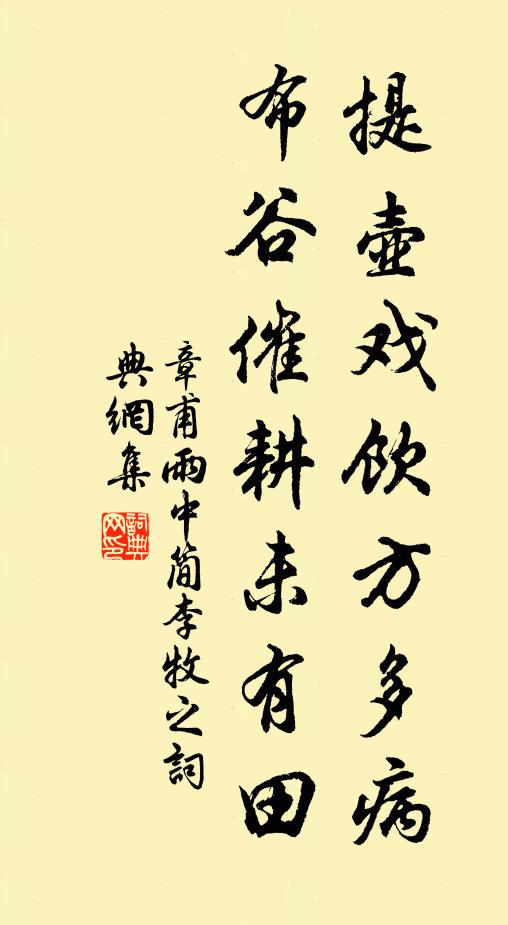 提壶戏饮方多病
布谷催耕未有田
章甫雨中简李牧之詞
典網集
詞典
网印